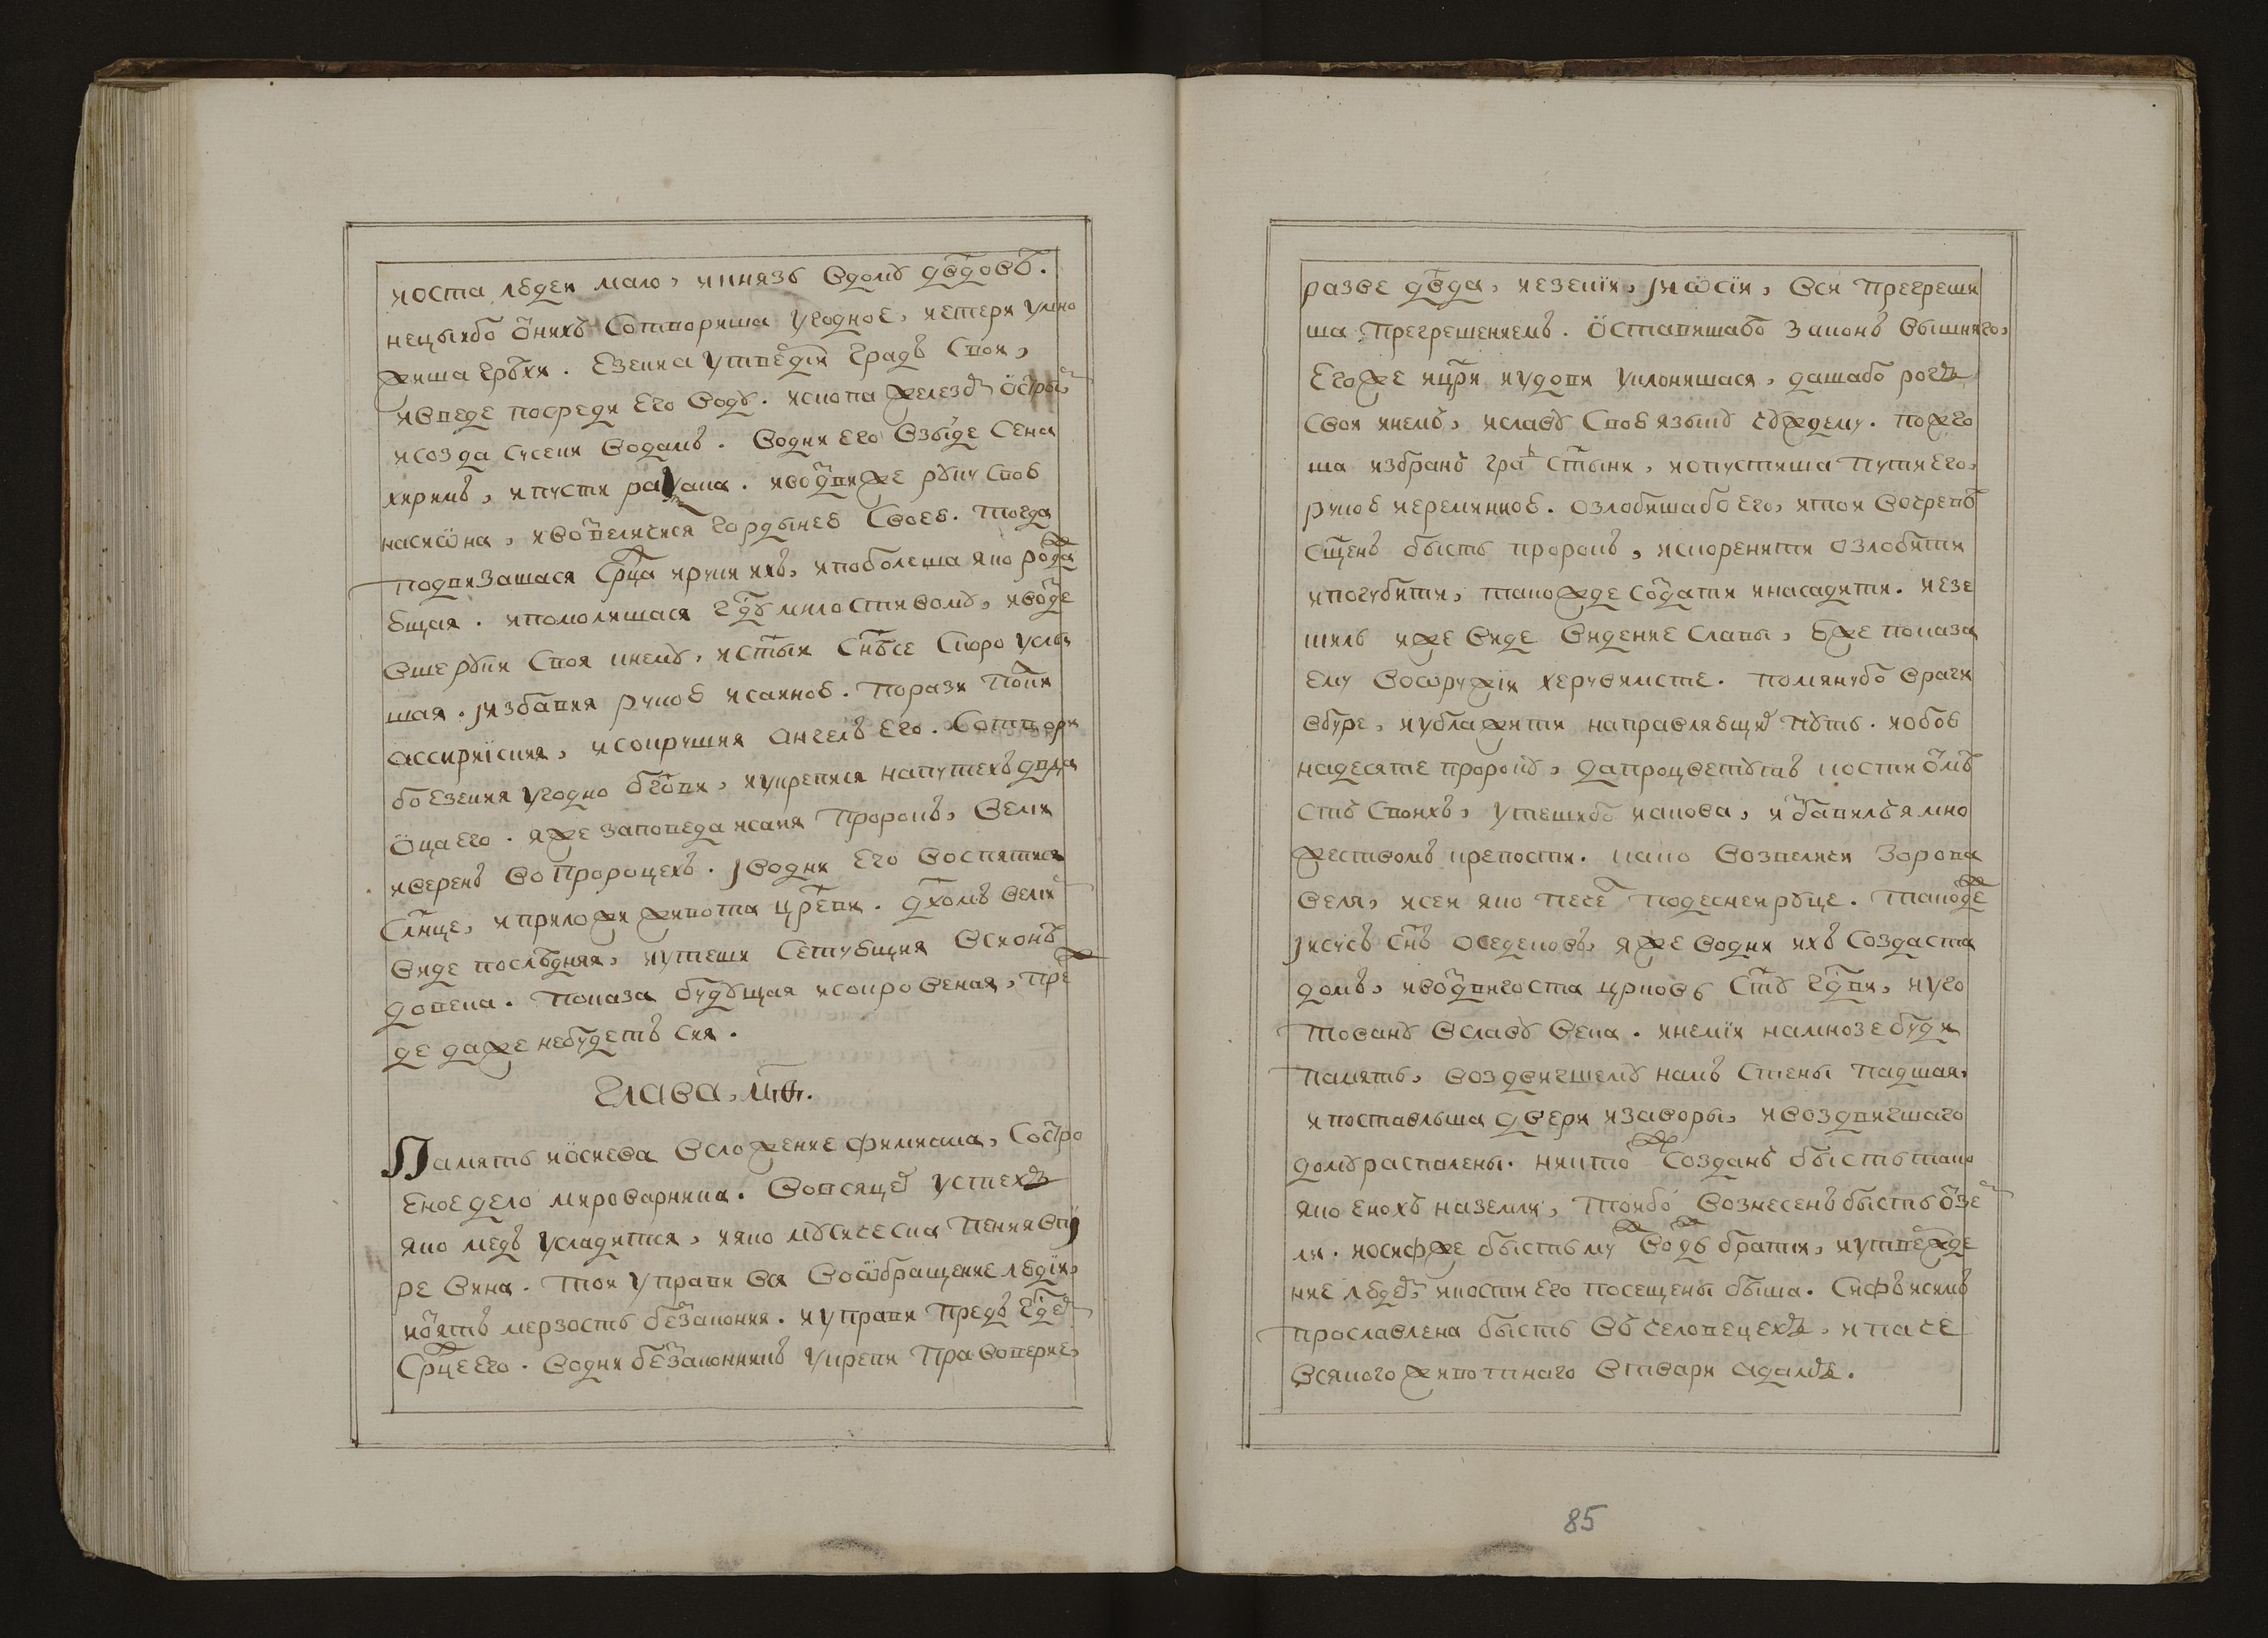 иоста людеи мало, икнязь вдому дв҃довѣ.
нецыибо ѿнихъ сотвориша угодное, иетери умно
жиша грѣхи. Езекиа утверди градъ свои,
ивведе посреди его воду. ископа железо̑ остры̑
исозда сусеки водамъ. водни его взыде сена
херимъ, ипусти раѱака. ивоздвиже руку свою
насиѡна, ивозвеличися гордынею своею. тогда
подвизашася ср҃ца ируки ихъ, ипоболеша яко рода
ющая. ипомолишася гд҃у милостивому, ивозде
вше руки своя кнему, ист҃ыи снб҃се скоро услы
шая. ꙇизбавия рукою исаиною. порази полки
ассирииския, исокрушия ангелъ его. сотвори
бо езекия угодно бг҃ови, иукрепися напутехъ дв҃да
ѿца его. яже заповеда исаия пророкъ, вели
иверенъ вопророцехъ. ꙇводни его воспятися
сл҃нце, иприложи живота цр҃еви. дх҃омъ вели
виде последняя, иутеши сетующия всионѣ
довека. показа будущая исокровеная, пре
де даже небудетъ сия.
Глава, м҃ѳ.
Память иѡсиева всложение фимиама, состро
еное дело мироварника. вовсяце̑ устехъ
яко медъ усладится, ияко мусическа пения впи
ре вина. тои управи ся вобращение людїи,
иѿятъ мерзость беззакония. иуправи предъ гд҃е̑
ср҃це его. водни беззаконникъ укрепи правоверие,
разве дв҃да, иезекїи, ꙇиѡсїи, вси прегреши
ша прегрешениемъ. ѿставишабо законъ вышняго,
егоже иц҃ри иудови уклонишася, дашабо рогъ
своя инемъ, иславу свою языку чуждему. пожго
ша избранъ гра̑ ст҃ыни, иопустиша пути его,
рукою иеремииною. озлобишабо его, итои вочреве
сщ҃енъ бысть пророкъ, искоренити озлобити
ипогубити, такожде создати инасадити. иезе
киль иже виде видение славы, юже показа
ему воѡружїи херувимсте. помянубо враги
вбуре, иублажити направляющи̑ путь. иобою
надесяте пророку, дапроцветутъ кости ѿмѣ
стъ своихъ, утешибо иакова, избавилъ я мно
жествомъ крепости. како возвеличи зорова
веля, исеи яко песе̑подеснеи руце. такожде
ꙇисусъ сн҃ъ оседековъ, яже водни ихъ создаста
домъ, ивоздвигоста црковь ст҃у гд҃ви, иуго
товану вславу века. инемїи намнозе буди
память, воздвигшему намъ стены падшая,
ипоставльша двери изаворы, ивоздвигшаго
домураспалены. никтоже созданъ бысть тако
яко енохъ наземли, тоибо вознесенъ бысть ѿзе
ли. иосифже бысть му̑ вождь братии, иутвержде
ние люде̑, икости его посещены быша. сифъ исимъ
прославлена бысть вѣ человецехъ, ипаче
всякого животнаго втвари адамъ.
85